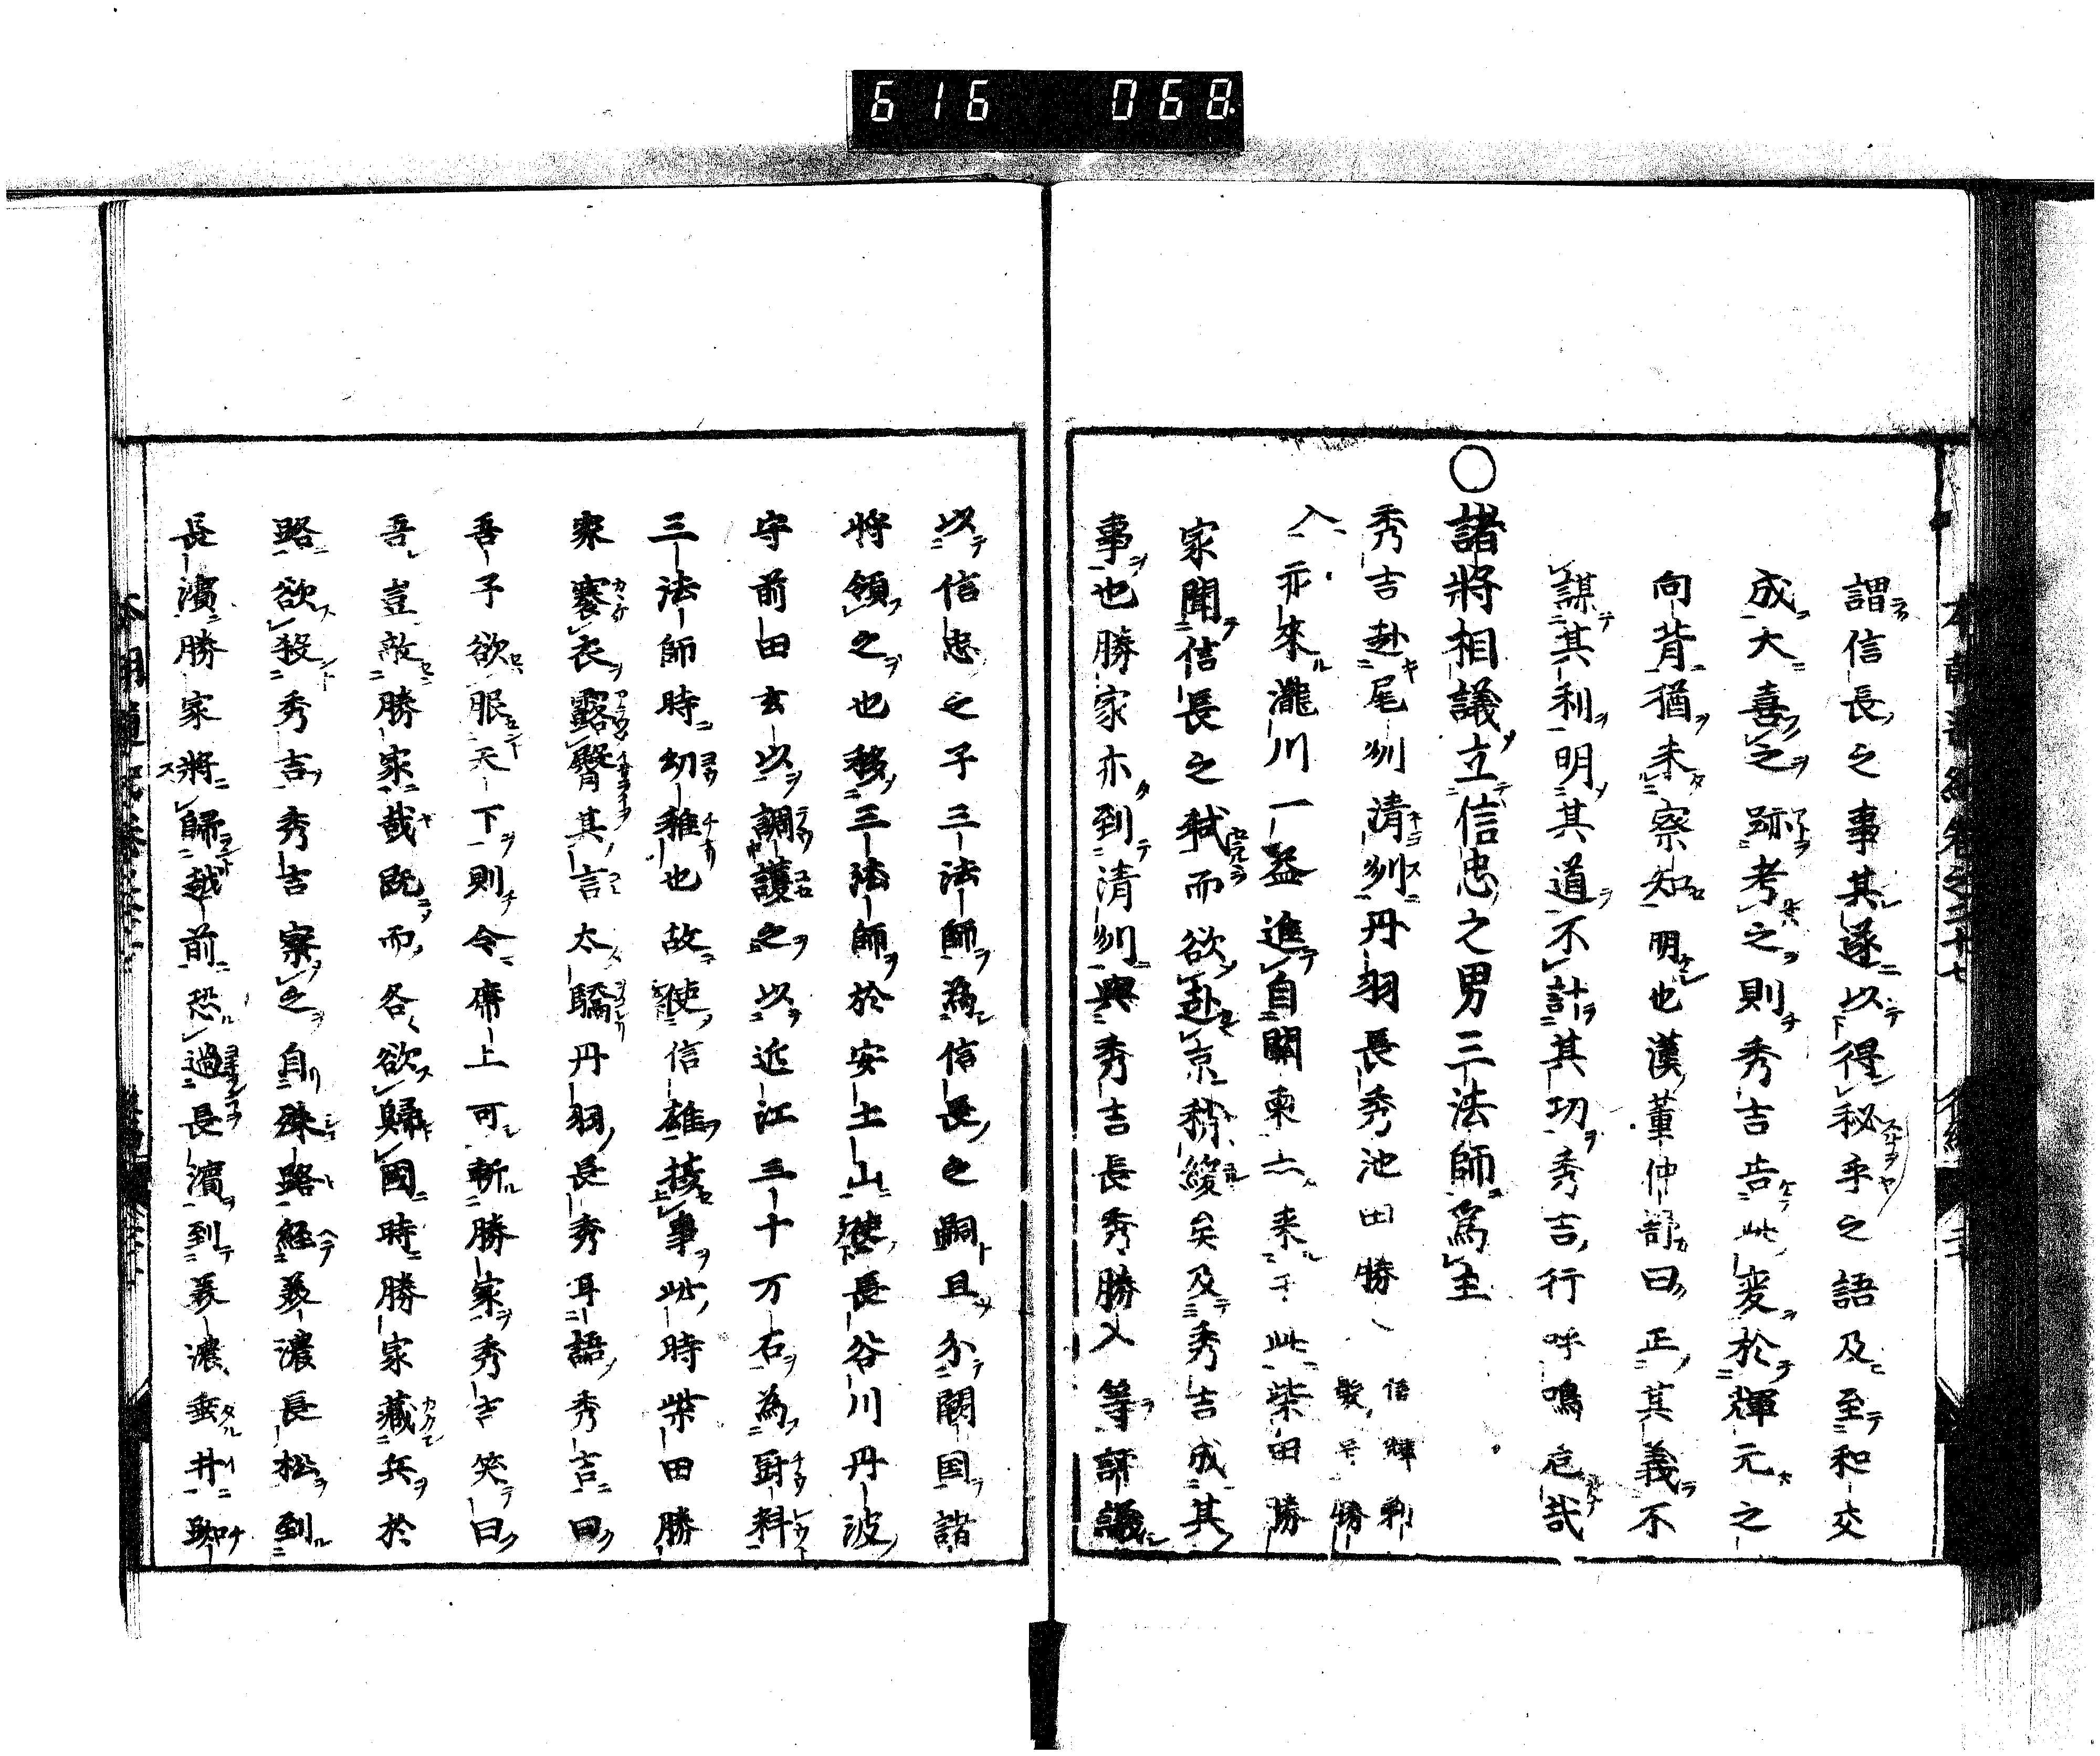 616 068
謂信長之事其遂以得秘乎之語及至和交
成大喜之跡考之則秀吉告此変於輝元之
向背猶未察知明也漢董仲舒曰正其義不
謀其利明其道不計其功秀吉行呼鳴危哉
○諸將相議立信忠之男三法師爲主
秀吉赴尾州清州丹羽長秀池田勝
信輝剃
髮号勝
入亦來瀧川一益進自關東亦来于此柴田勝
家聞信長之弑而欲赴京稍緩矣及秀吉成其
事也勝家亦到清州與秀吉長秀勝入等評議
以信忠之子三法師為信長之嗣且分闕国諸
將領之也移三法師於安土山使長谷川丹波
守前田玄以調護之以近江三十万石為厨料
三法師時幼稚也故使信雄接事此時柴田勝
家褰衣露臀其言太驕丹羽長秀耳語秀吉曰
吾子欲服天下則令席上可斬勝家秀吉笑曰
吾豈敵勝家哉既而各欲歸國時勝家藏兵於
路欲殺秀吉秀吉察之自殊路経美濃長松到
長濱勝家將歸越前恐過長濱到美濃垂井